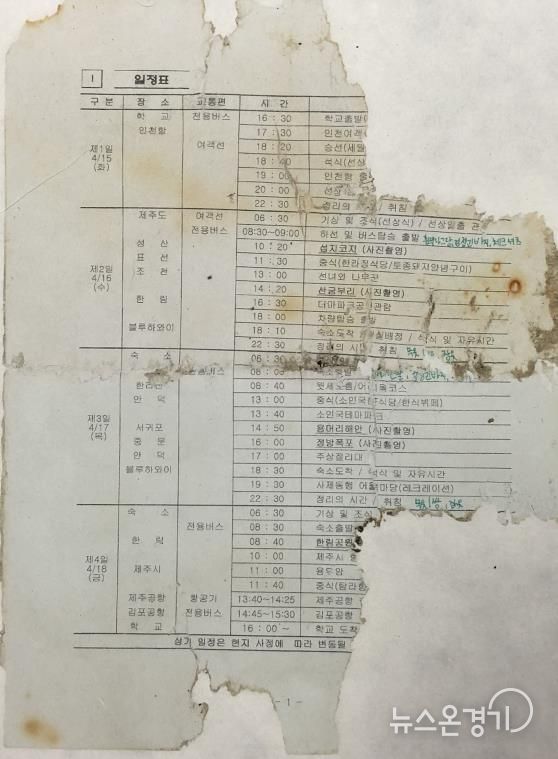 I 일정표
구 분 장 소 교통편 시 간
제1일 4/15 (화)
학 교 전용버스 16 : 30 학교출발(
인천항 17 : 30 인천여객
여객선 18 : 20 승선(세월
18 : 40 석식(선상
19 : 00 인천항 출
20 : 00 선상
22 : 30 정리의 / 취침
제2일 4/16 (수)
제주도 여객선 06 : 30 기상 및 조식(선상식) / 선상일출 관
전용버스 08:30~09:00 하선 및 버스탑승 출발
성 산 10 : 20 섭지코지 (사진촬영)
표 선 11 : 30 중식(한라정식당/토종돼지양념구이)
조 천 13 : 00 선녀와 나무꾼
14 : 20 산굼부리 (사진촬영)
한 림 16 : 30 더마파크공연관람
18 : 00 차량탑승 출발
블루하와이 18 : 10 숙소도착 / 실배정 / 석식 및 자유시간
22 : 30 정리의 시간 / 취침
제3일 4/17 (목)
숙 소 06 : 30
전용버스 08 : 00 숙소출발
한라산 08 : 40 윗세오름/어리목코스
안 덕 13 : 00 중식(소인국 식당/한식뷔페)
13 : 40 소인국테마파크
서귀포 14 : 50 용머리해안 (사진촬영)
중 문 16 : 00 정방폭포 (사진촬영)
안 덕 17 : 00 주상절리대
블루하와이 18 : 30 숙소도착 / 석식 및 자유시간
19 : 30 사제동행 어울 마당(레크레이션)
22 : 30 정리의 시간 / 취침
제4일 4/18 (금)
숙 소 06 : 30 기상 및 조식
전용버스 08 : 30 숙소출발
한 림 08 : 40 한림공원
10 : 00 제주시
제주시 11 : 00 용두암
11 : 40 중식(탐라
제주공항 항공기 13:40~14:25 제주공항
김포공항 전용버스 14:45~15:30 김포공항
학 교 16 : 00 ~ 학교 도착
상기 일정은 현지 사정에 따라 변동될
- 1 -
뉴스온경기